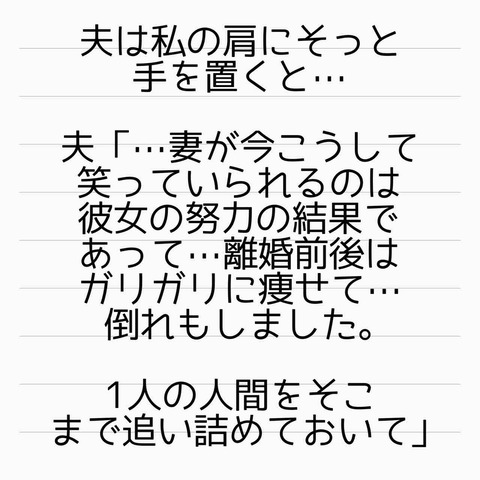 夫は私の肩にそっと
手を置くと…
夫「…妻が今こうして
笑っていられるのは
彼女の努力の結果で
あって…離婚前後は
ガリガリに痩せて…
倒れもしました。
1人の人間をそこ
まで追い詰めておいて」